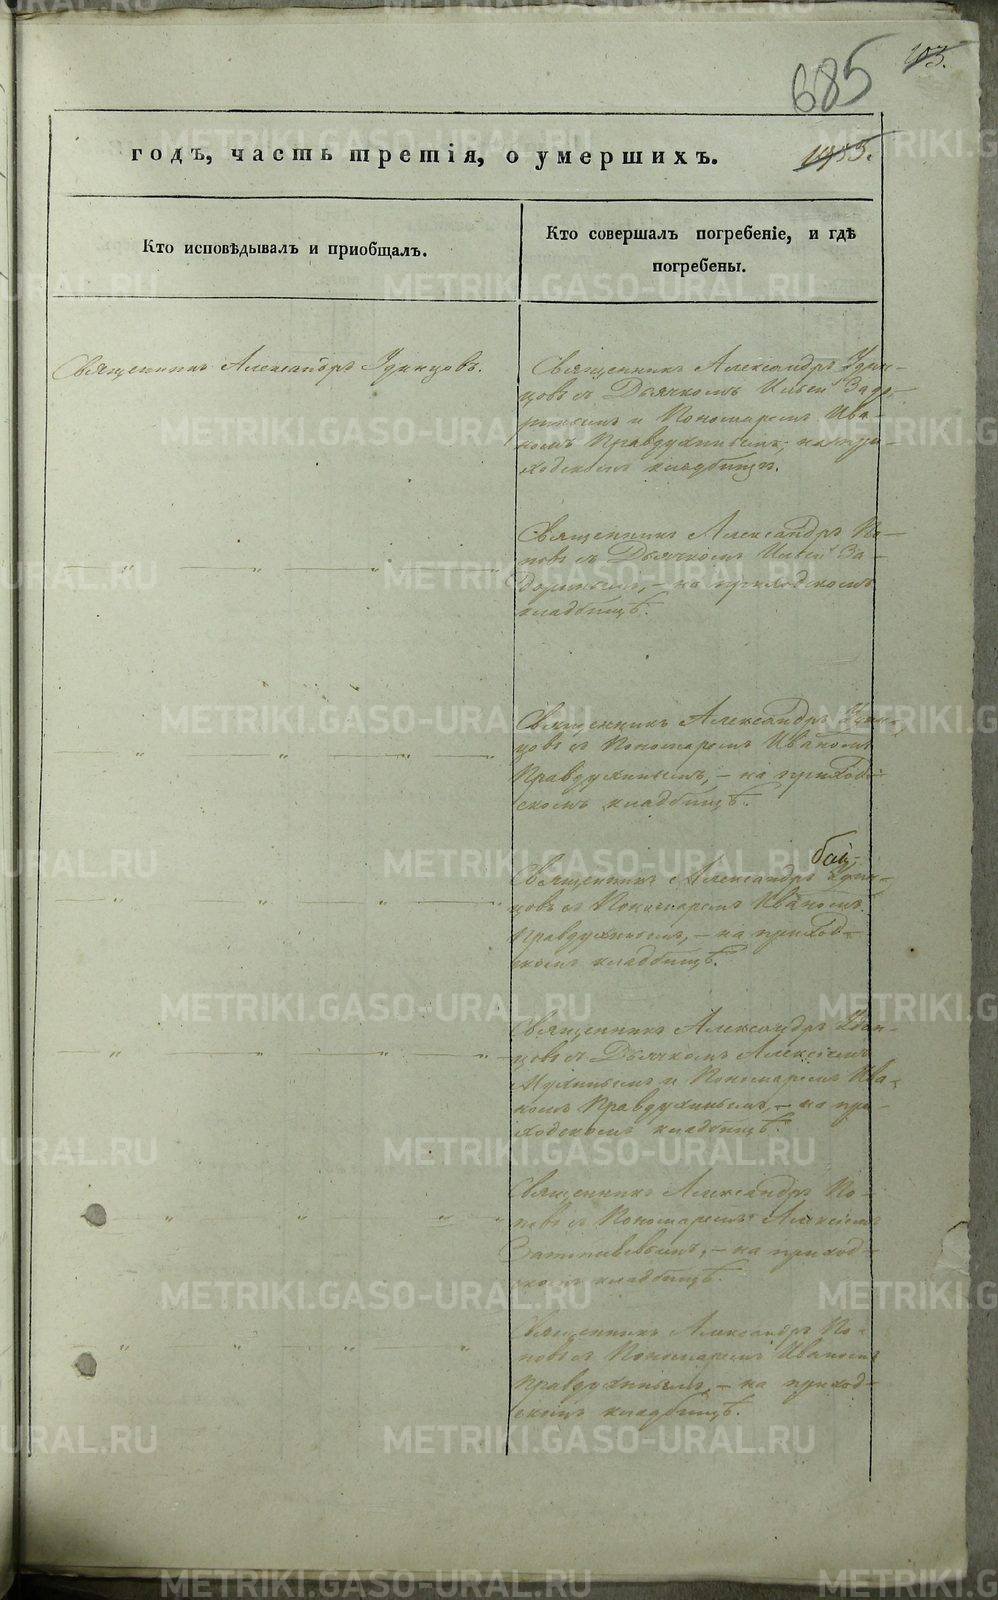 685
103.
годъ, часть третія, о умершихъ.
1055.
Кто исповѣдывалъ и приобщалъ.
Кто совершалъ погребеніе, и гдѣ
погребены.
Священникъ Александръ Удинцовъ.
Священникъ Александръ Удин-
цовъ съ Дьячкомъ Ильей Задо-
ринымъ и Пономаремъ Ива-
номъ Правдухинымъ, на при-
ходскомъ кладбищѣ.
Священникъ Александръ По-
повъ съ Дьячкомъ Ильей За-
доринымъ, – на приходскомъ
кладбищѣ.
Священникъ Александръ Удин-
цовъ съ Пономаремъ Иваномъ
Правдухинымъ, – на приход-
скомъ кладбищѣ.
Священникъ Александръ Удин-
цовъ съ Пономаремъ Иваномъ
Правдухинымъ, – на приход-
скомъ кладбищѣ.
Священникъ Александръ Удин-
цовъ съ Дьячкомъ Алексіемъ
и Пономаремъ Ива-
номъ Правдухинымъ, – на при-
ходскомъ кладбищѣ.
Священникъ Александръ По-
повъ съ Пономаремъ Алексіемъ
– на приход-
скомъ кладбищѣ.
Священникъ Александръ По-
повъ съ Пономаремъ Иваномъ
Правдухинымъ, – на приход-
скомъ кладбищѣ.
METRIKI.GASO-URAL.RU